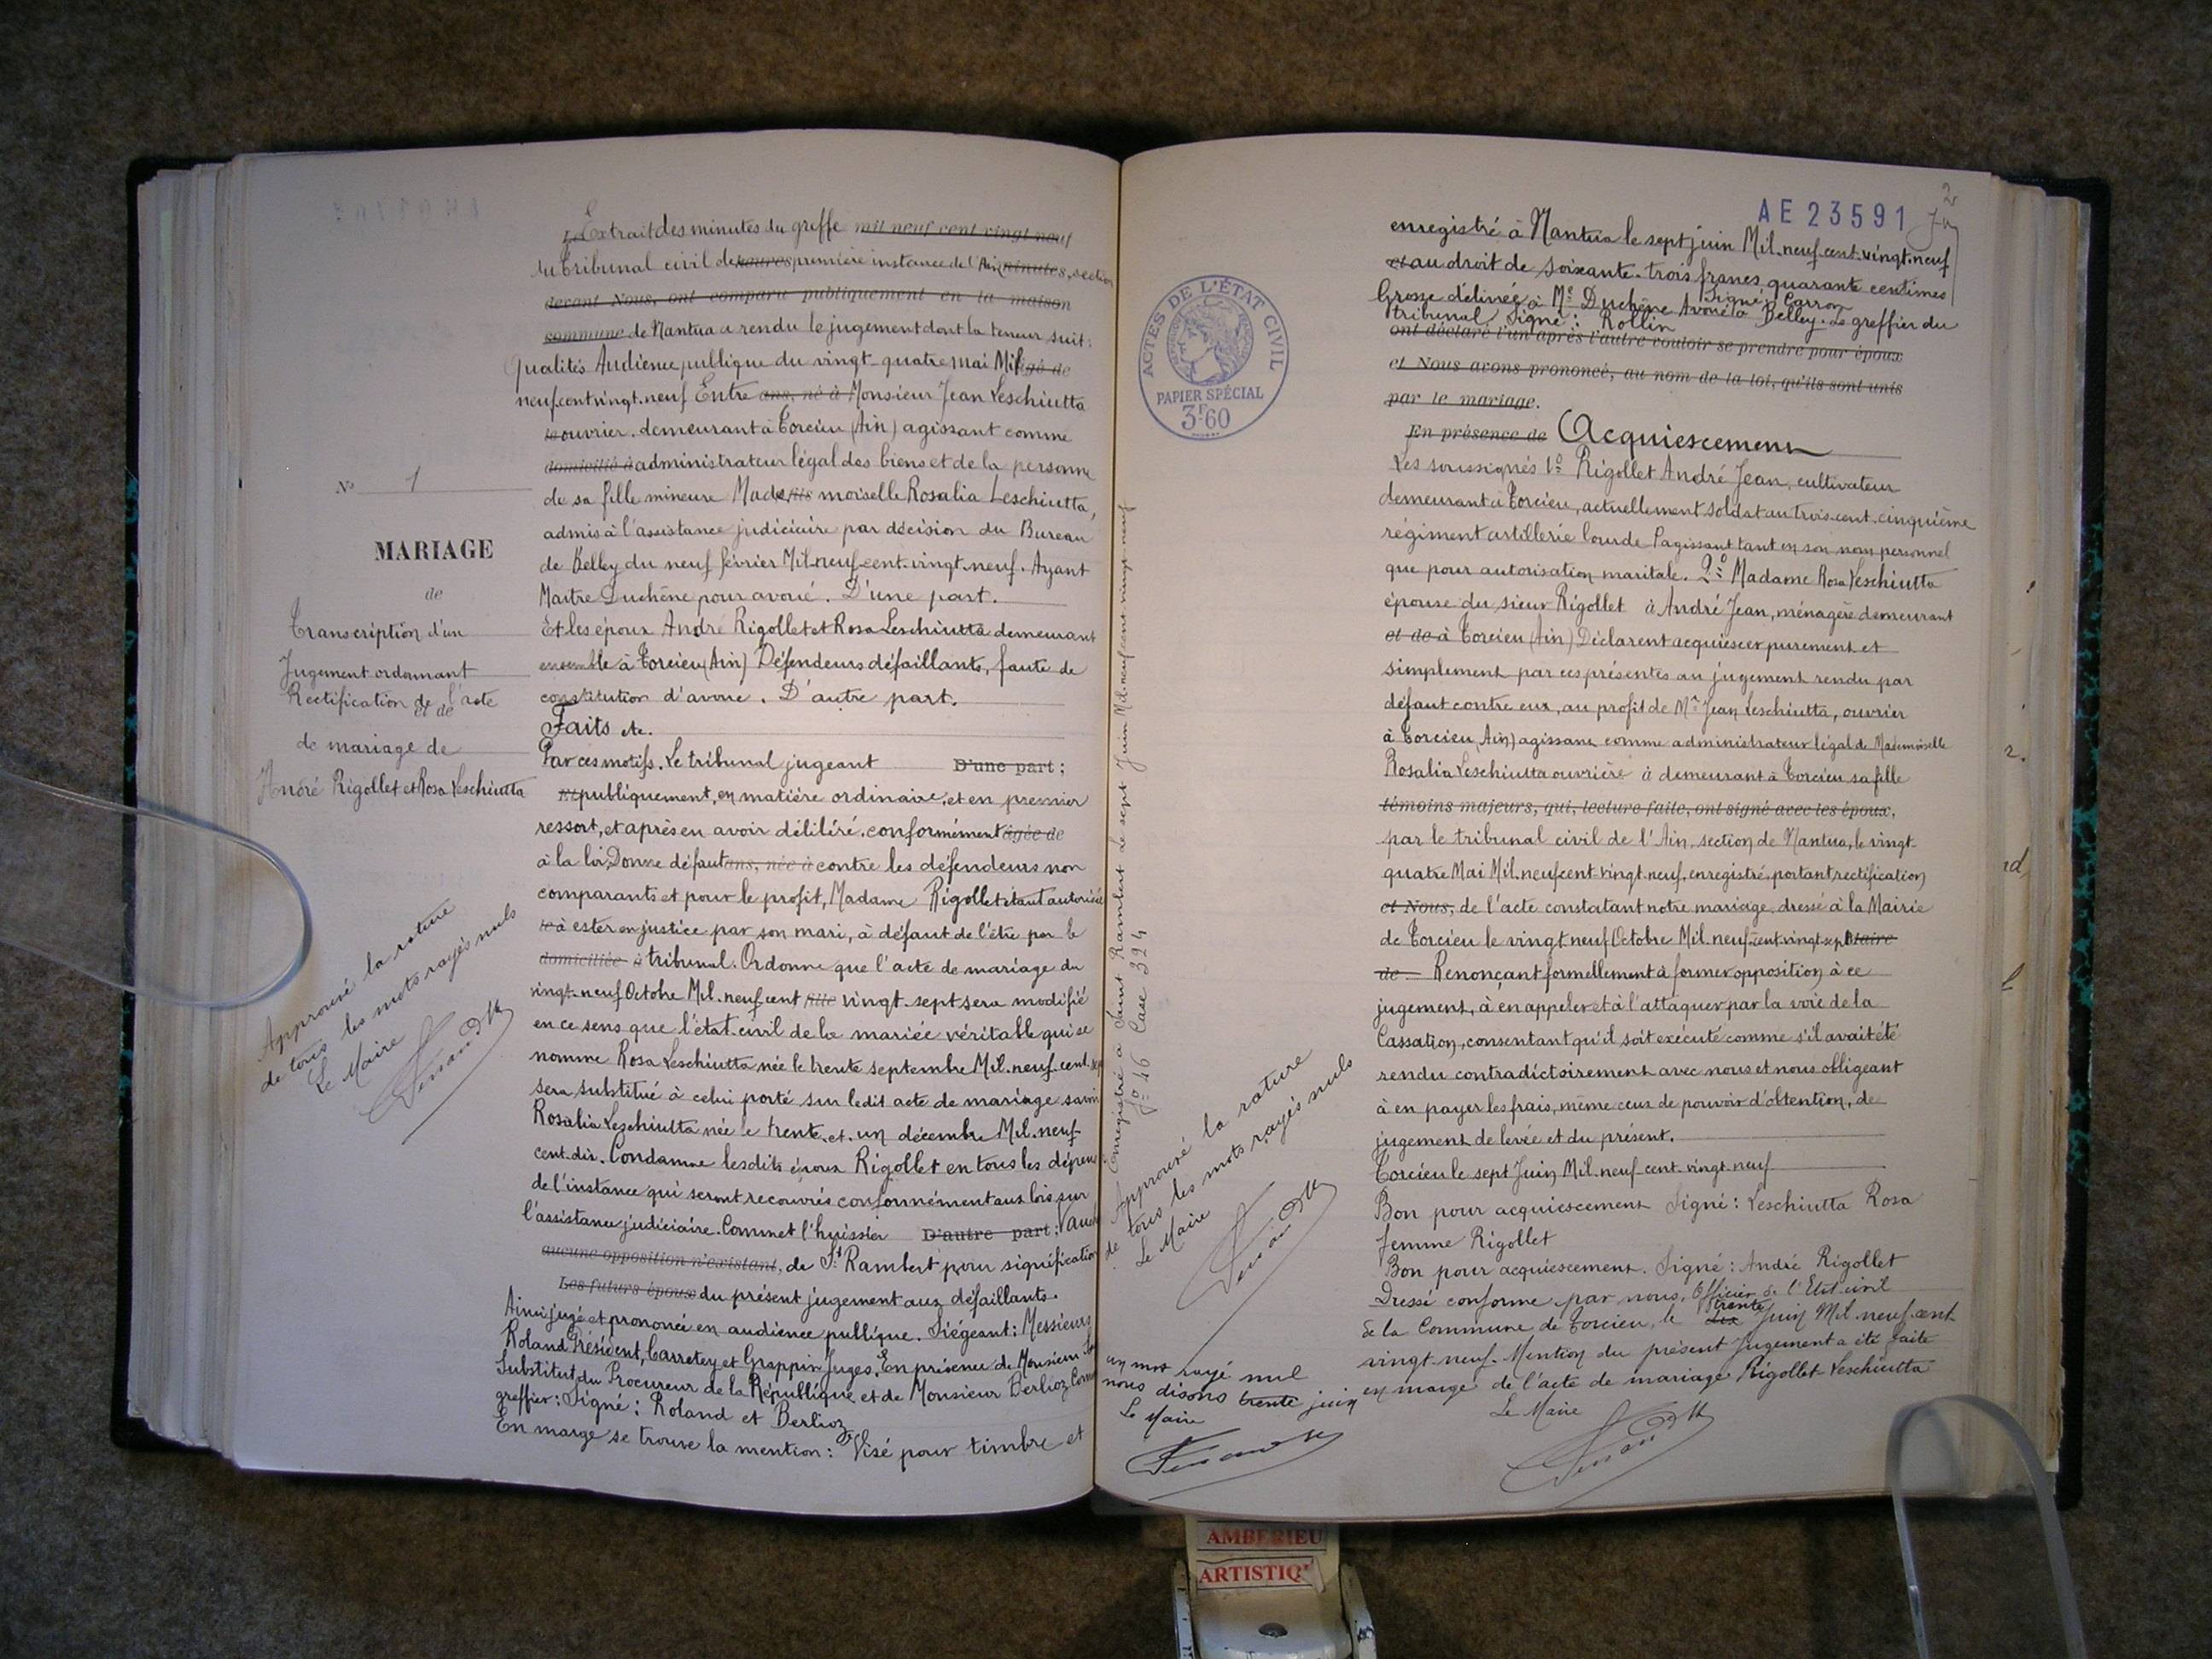 N° 1
MARIAGE
de
Transcription d'un
Jugement ordonnant
Rectification de l'acte
et de
de mariage de
André Rigollet et Rosa Leschiutta
Approuvé la rature
de tous les mots rayés nuls
Le Maire
Extrait des minutes du greffe mil neuf cent vingt neuf
du Tribunal civil de heures première instance de l'Ain minutes, section
devant Nous, ont comparu publiquement en la maison
commune de Nantua a rendu le jugement dont la teneur suit:
Qualités Audience publique du vingt-quatre mai Mil âgé de
neuf cent vingt-neuf Entre ans, né à Monsieur Jean Leschiutta
le ouvrier, demeurant à Torcieu (Ain) agissant comme
domicilié à administrateur légal des biens et de la personne
de sa fille mineure Made fils moiselle Rosalia Leschiutta,
admis à l'assistance judiciaire par décision du Bureau
de Belley du neuf février Mil-neuf-cent-vingt-neuf. Ayant
Maître Duchêne pour avoué. D'une part.
Et les époux André Rigollet et Rosa Leschiutta demeurant
ensemble à Torcieu (Ain) Défendeurs défaillants, faute de
constitution d'avoué. D'autre part.
Faits etc.
Par ces motifs. Le tribunal jugeant D'une part;
Et publiquement, en matière ordinaire, et en premier
ressort, et après en avoir délibéré, conformément âgée de
à la loi, Donne défaut ans, née à contre les défendeurs non
comparants et pour le profit, Madame Rigollet étant autorisée
le à ester en justice par son mari, à défaut de l'être par le
domiciliée à tribunal. Ordonne que l'acte de mariage du
vingt-neuf Octobre Mil-neuf cent fille vingt-sept sera modifié
en ce sens que l'état-civil de la mariée véritable qui se
nomme Rosa Leschiutta née le trente septembre Mil-neuf-cent
sera substitué à celui porté sur ledit acte de mariage savoir
Rosalia Leschiutta née le trente-et-un décembre Mil-neuf-
cent-dix. Condamne lesdits époux Rigollet en tous les dépens
de l'instance qui seront recouvrés conformément aux lois sur
l'assistance judiciaire. Commet l'huissier D'autre part;
aucune opposition n'existant, de St Rambert pour signification
Les futurs époux du présent jugement aux défaillants.
Ainsi jugé et prononcé en audience publique. Siégeant: Messieurs
Roland Président, Carretey et Grappin Juges, En présence de Monsieur
Substitut du Procureur de la République et de Monsieur Berlioz
greffier: Signé: Roland et Berlioz
En marge se trouve la mention: Visé pour timbre et
Enregistré à Saint Rambert le sept Juin Mil-neuf cent vingt-neuf
f° 46 Case 324
ACTES DE L'ÉTAT CIVIL
PAPIER SPÉCIAL
3F60
AE 23591
2
enregistré à Nantua le sept juin Mil-neuf-cent-vingt-neuf
et au droit de soixante-trois francs quarante centimes
Signé: Carron
Grosse délivrée à Me Duchêne Avoué à Belley. Le greffier du
tribunal. Signé: Rollin
ont déclaré l'un après l'autre vouloir se prendre pour époux
et Nous avons prononcé, au nom de la loi, qu'ils sont unis
par le mariage.
En présence de Acquiescement
Les soussignés 1° Rigollet André Jean, cultivateur
demeurant à Torcieu, actuellement soldat au trois-cent-cinquième
régiment artillerie lourde P agissant tant en son nom personnel
que pour autorisation maritale. 2° Madame Rosa Leschiutta
épouse du sieur Rigollet à André Jean, ménagère demeurant
et de à Torcieu (Ain) Déclarent acquiescer purement et
simplement par ces présentes au jugement rendu par
défaut contre eux, au profit de Mr Jean Leschiutta, ouvrier
à Torcieu (Ain) agissant comme administrateur légal de Mademoiselle
Rosalia Leschiutta ouvrière à demeurant à Torcieu sa fille
témoins majeurs, qui, lecture faite, ont signé avec les époux,
par le tribunal civil de l'Ain, section de Nantua, le vingt-
quatre Mai Mil-neuf cent vingt-neuf, enregistré, portant rectification
et Nous, de l'acte constatant notre mariage, dressé à la Mairie
de Torcieu le vingt neuf Octobre Mil-neuf-cent-vingt-sept Maire
de Renonçant formellement à former opposition à ce
jugement, à en appeler et à l'attaquer par la voie de la
Cassation, consentant qu'il soit exécuté comme s'il avait été
rendu contradictoirement avec nous et nous obligeant
à en payer les frais, même ceux de pouvoir d'obtention, de
jugement de levée et du présent.
Torcieu le sept Juin Mil-neuf cent vingt neuf
Bon pour acquiescement Signé: Leschiutta Rosa
femme Rigollet
Bon pour acquiescement. Signé: André Rigollet
Dressé conforme par nous, Officier de l'Etat-civil
de la Commune de Torcieu, le dix trente Juin Mil-neuf-cent
vingt-neuf. Mention du présent Jugement a été faite
en marge de l'acte de mariage Rigollet-Leschiutta
Le Maire
Approuvé la rature
de tous les mots rayés nuls
Le Maire
un mot rayé nul
nous disons trente juin
Le Maire
AMBERIEU
ARTISTIQ